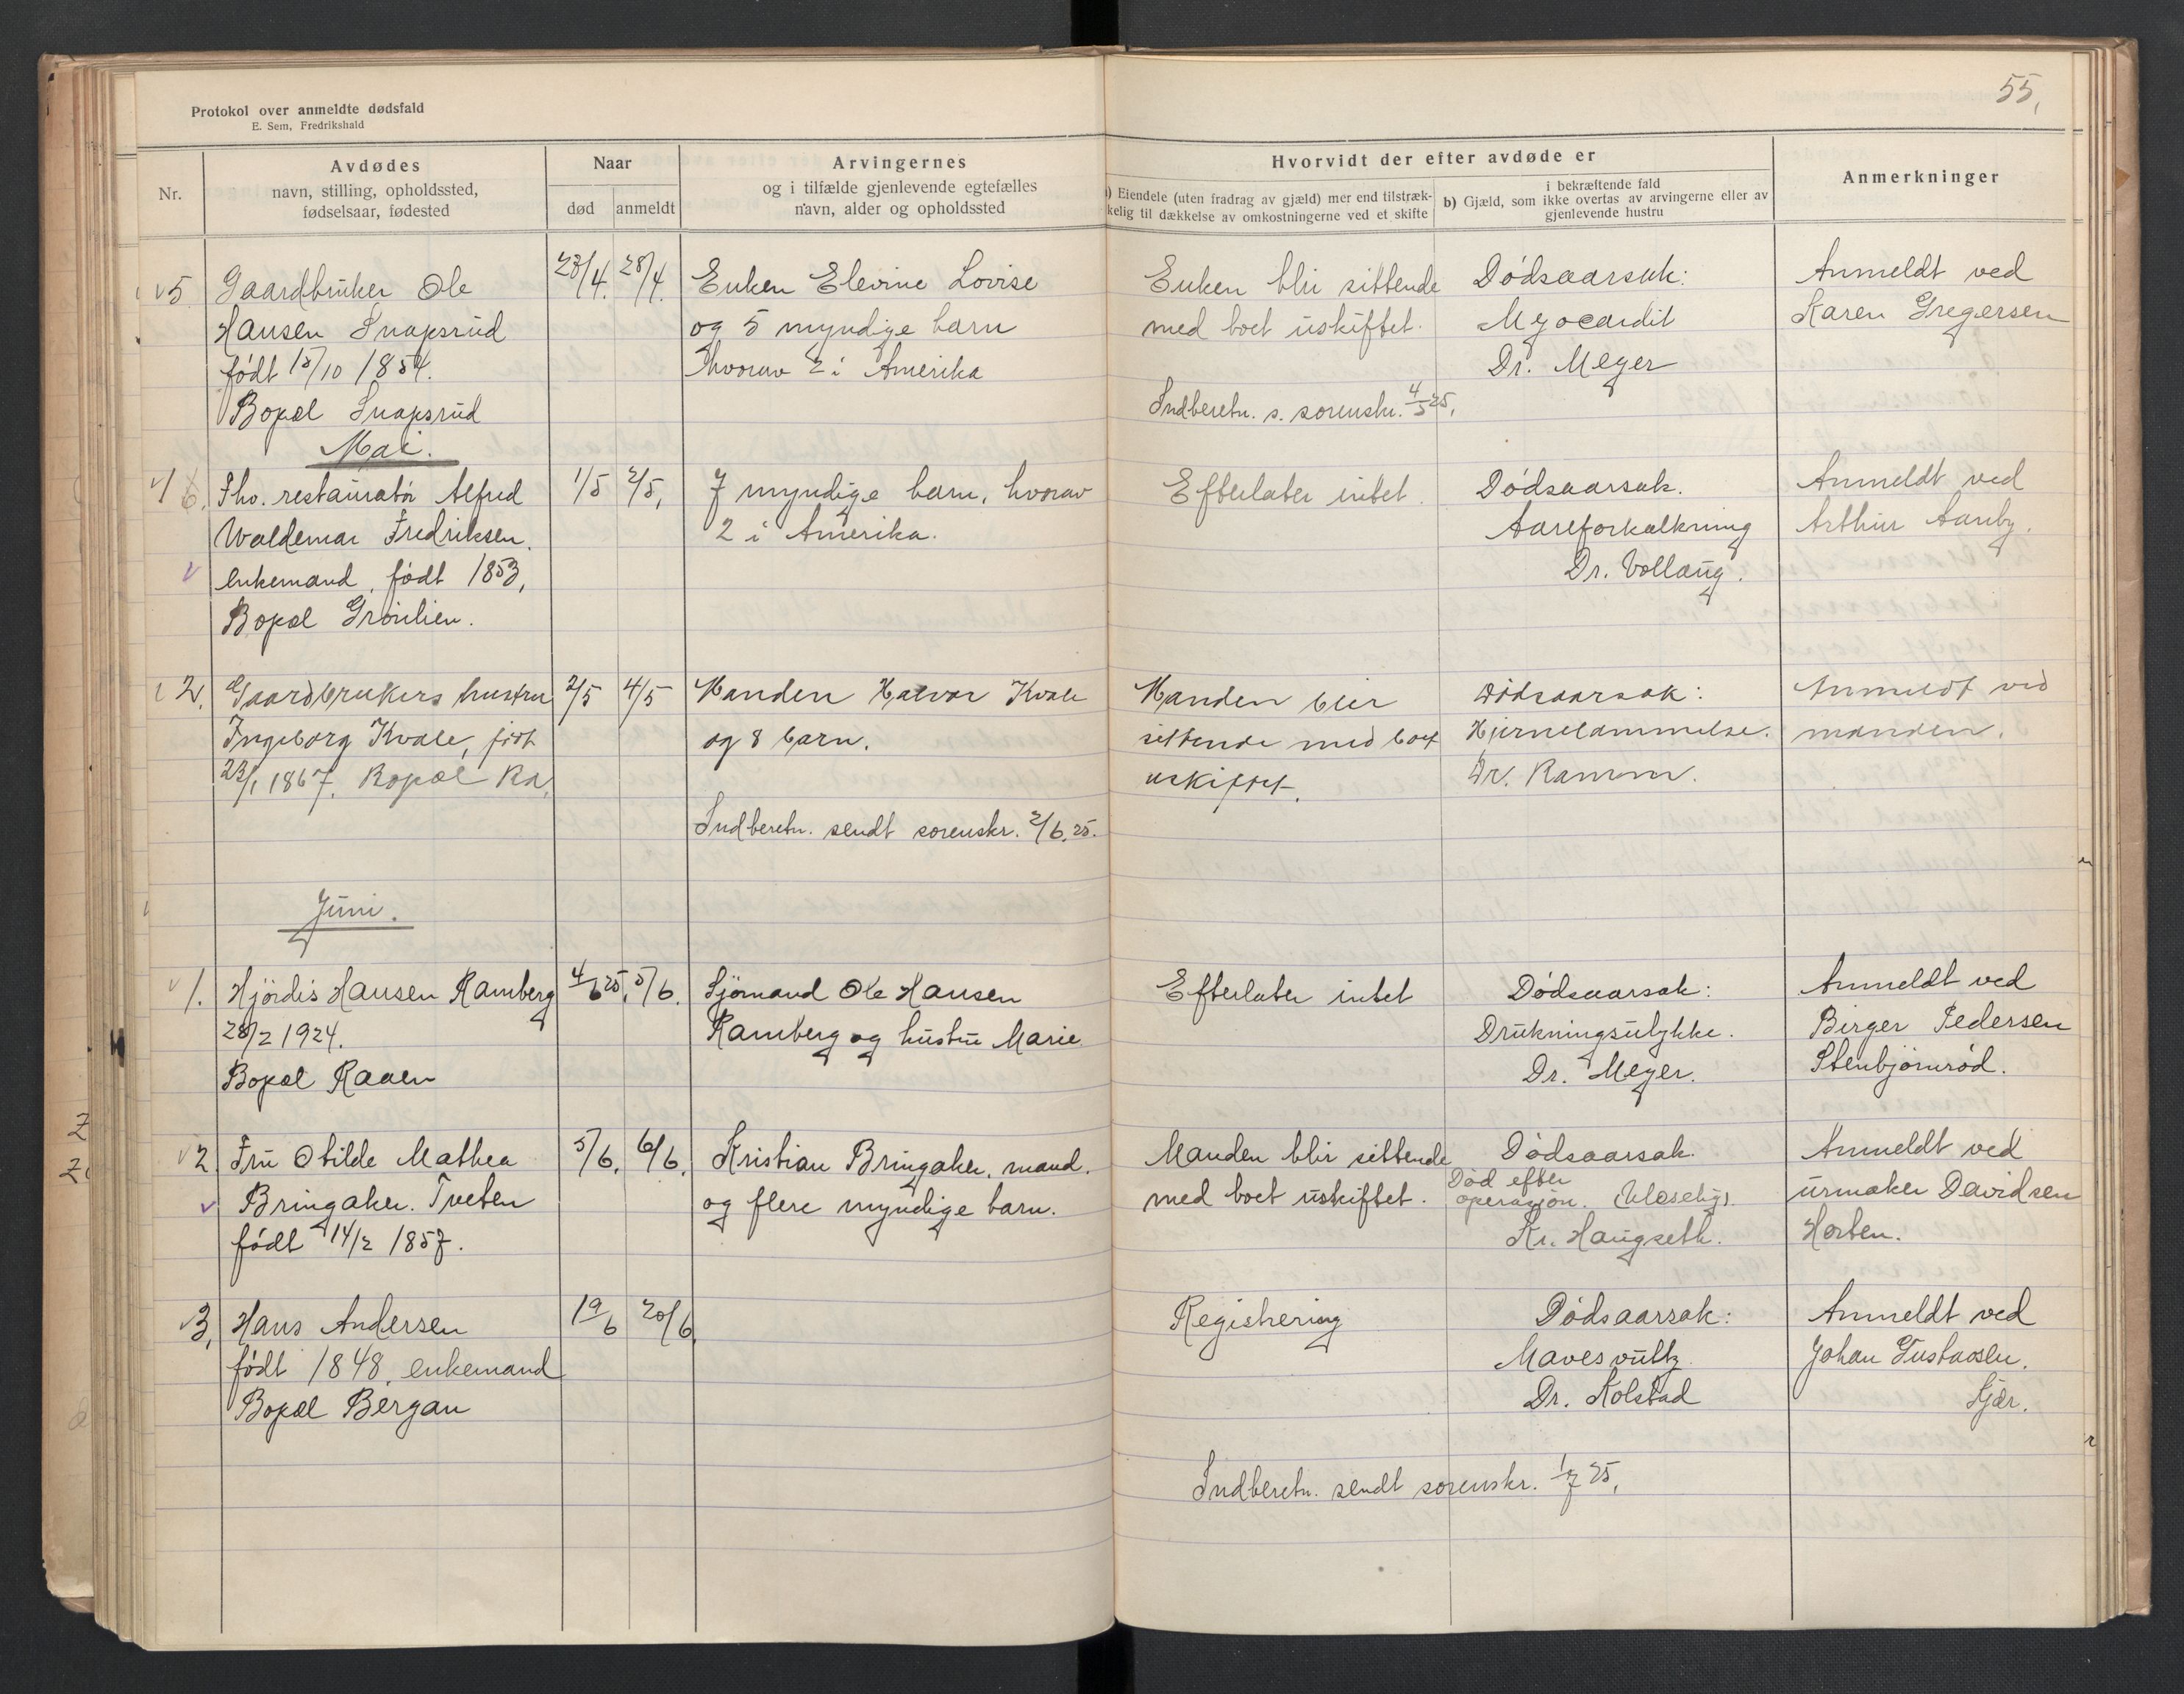 55,
Protokol over anmeldte dødsfald
E. Sem, Fredrikshald
Nr.
Avdødes
navn, stilling, opholdssted,
fødselsaar, fødested
Naar
død anmeldt
Arvingernes
og i tilfælde gjenlevende egtefælles
navn, alder og opholdssted
Hvorvidt der efter avdøde er
a) Eiendele (uten fradrag av gjæld) mer end tilstræk-
kelig til dækkelse av omkostningerne ved et skifte
i bekræftende fald
b) Gjæld, som ikke overtas av arvingerne eller av
gjenlevende hustru
Anmerkninger
5 Gaardbruker Ole
Hansen Snapsrud
født 15/10 1854.
Bopæl Snapsrud
23/4. 28/4.
Enken Elevine Lovise
og 5 myndige barn
hvorav 2 i Amerika
Enken blir sittende
med boet uskiftet.
Indberetn. s. sorenskr. 4/5 25,
Dødsaarsak:
Myocardit
Dr. Meyer
Anmeldt ved
Karen Gregersen
Mai.
1 Fhv. restauratør Alfred
Waldemar Fredriksen.
enkemand, født 1853,
Bopæl Grønlien.
1/5 2/5,
7 myndige barn, hvorav
2 i Amerika.
Efterlater intet.
Dødsaarsak.
Aareforkalkning
Dr. Vollaug.
Anmeldt ved
Arthur Aanby.
2. Gaardbrukers hustru
Ingeborg Kvale, født
23/1 1867. Bopæl Ra,
2/5 4/5
Manden Halvor Kvale
og 8 barn.
Indberetn. sendt sorenskr. 2/6.25.
Manden blir
sittende med boet
uskiftet.
Dødsaarsak:
Hjernelammelse.
Dr. Ramm.
Anmeldt ved
manden.
Juni.
1. Hjördis Hansen Ramberg
28/2 1924.
Bopæl Raaen
4/6 25, 5/6.
Sjömand Ole Hansen
Ramberg og hustru Marie
Efterlater intet
Dødsaarsak:
Drukningsulykke.
Dr. Meyer.
Anmeldt ved
Birger Pedersen
Stenbjørnrød.
2 Fru Otilde Mathea
Bringaker. Tveten
født 14/2 1857.
5/6. 6/6.
Kristian Bringaker, mand.
og flere myndige barn.
Manden blir sittende
med boet uskiftet.
Dødsaarsak.
Død efter
operasjon.
Kr. Haugseth.
Anmeldt ved
urmaker Davidsen
Horten.
3, Hans Andersen
født 1848, enkemand
Bopæl Bergan
19/6 20/6.
Registrering
Dødsaarsak:
Mavesvulst
Dr. Kolstad
Anmeldt ved
Johan Gustavsen.
Skjær.
Indberetn. sendt sorenskr. 1/7 25,